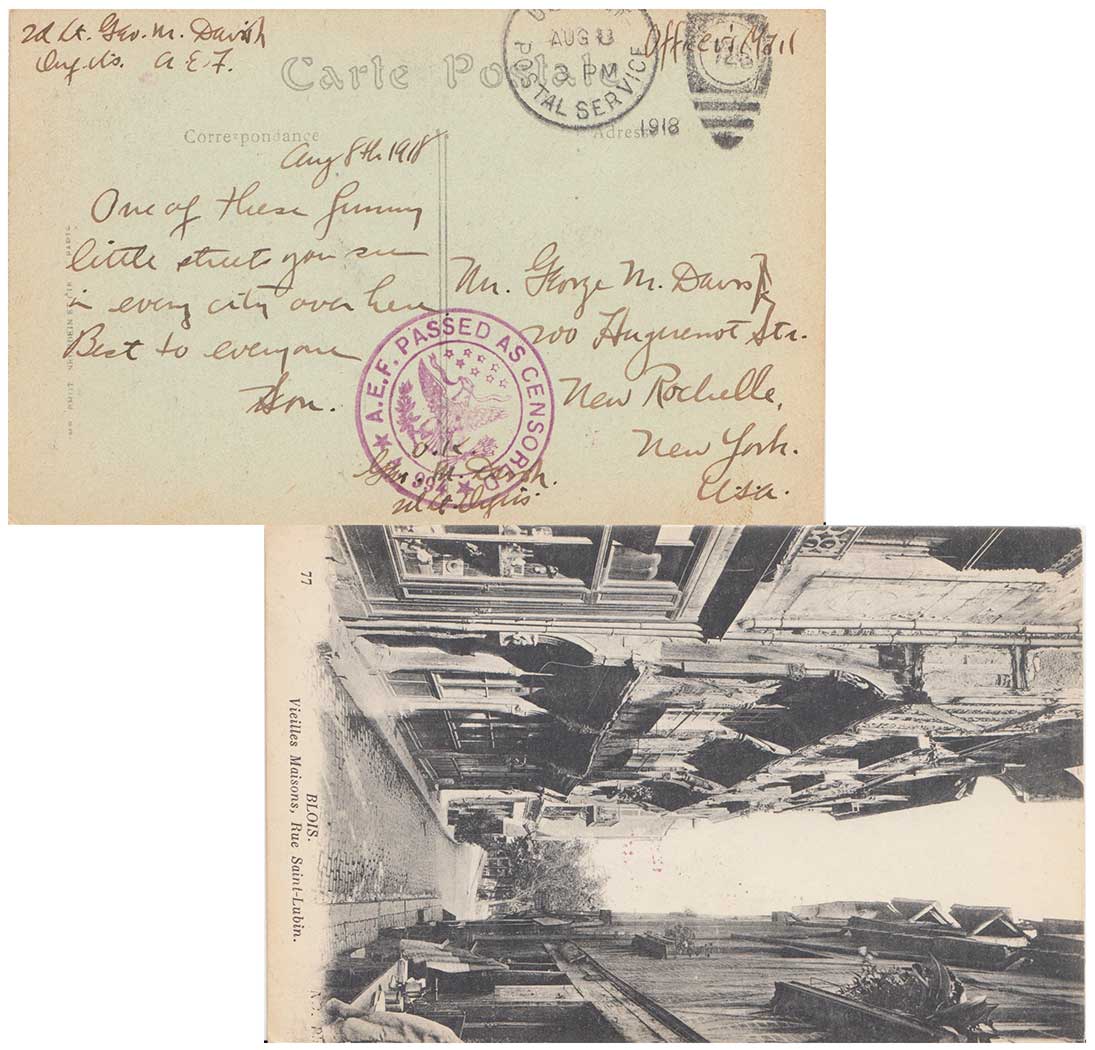 2d Lt. Geo. M. Davish
A.E.F.
Officer's Mail
Carte Postale
U.S.
AUG 8
3 PM
POSTAL SERVICE
1918
Correspondance
Adresse
Aug 8th 1918
One of these funny
little streets you see
in every city over here
Best to everyone
Son.
Mr. George M. Davish
200 Huguenot Str.
New Rochelle,
New York.
U.S.A.
A.E.F. PASSED AS CENSORED
O.K.
Geo. M. Davish.
2d Lt.
77
BLOIS.
Vieilles Maisons, Rue Saint-Lubin.